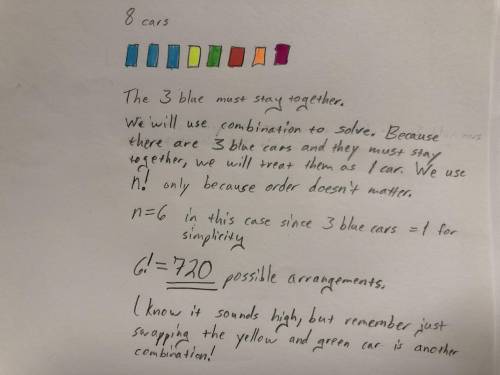 8 cars
The 3 blue must stay together.
We will use combination to solve. Because
there are 3 blue cars and they must stay
together, we will treat them as 1 car. We use
n! only because order doesn't matter.
n=6 in this case since 3 blue cars = 1 for
simplicity
6! = 720 possible arrangements.
I know it sounds high, but remember just
swapping the yellow and green car is another
combination!